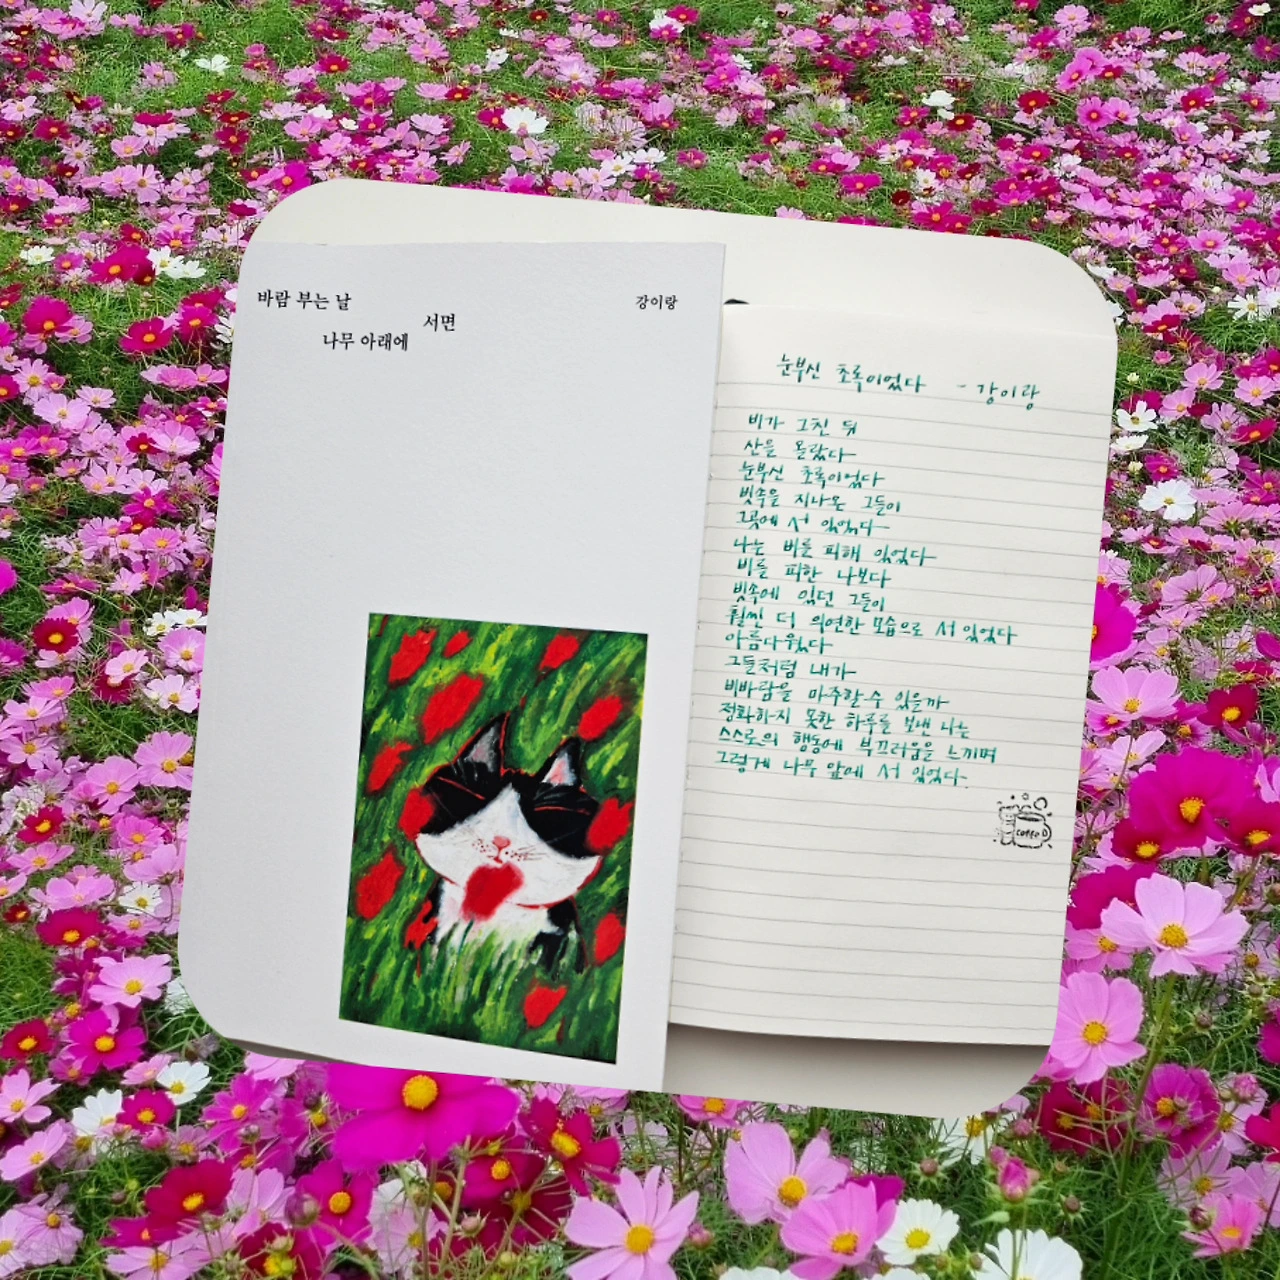 바람 부는 날
서면
나무 아래에
강이랑
눈부신 초록이었다 - 강이랑
비가 그친 뒤
산을 올랐다
눈부신 초록이었다
빗속을 지나온 그들이
그곳에 서 있었다
나는 비를 피해 있었다
비를 피한 나보다
빗속에 있던 그들이
훨씬 더 의연한 모습으로 서 있었다
아름다웠다
그들처럼 내가
비바람을 마주할 수 있을까
정화하지 못한 하루를 보낸 나는
스스로의 행동에 부끄러움을 느끼며
그렇게 나무 앞에 서 있었다.